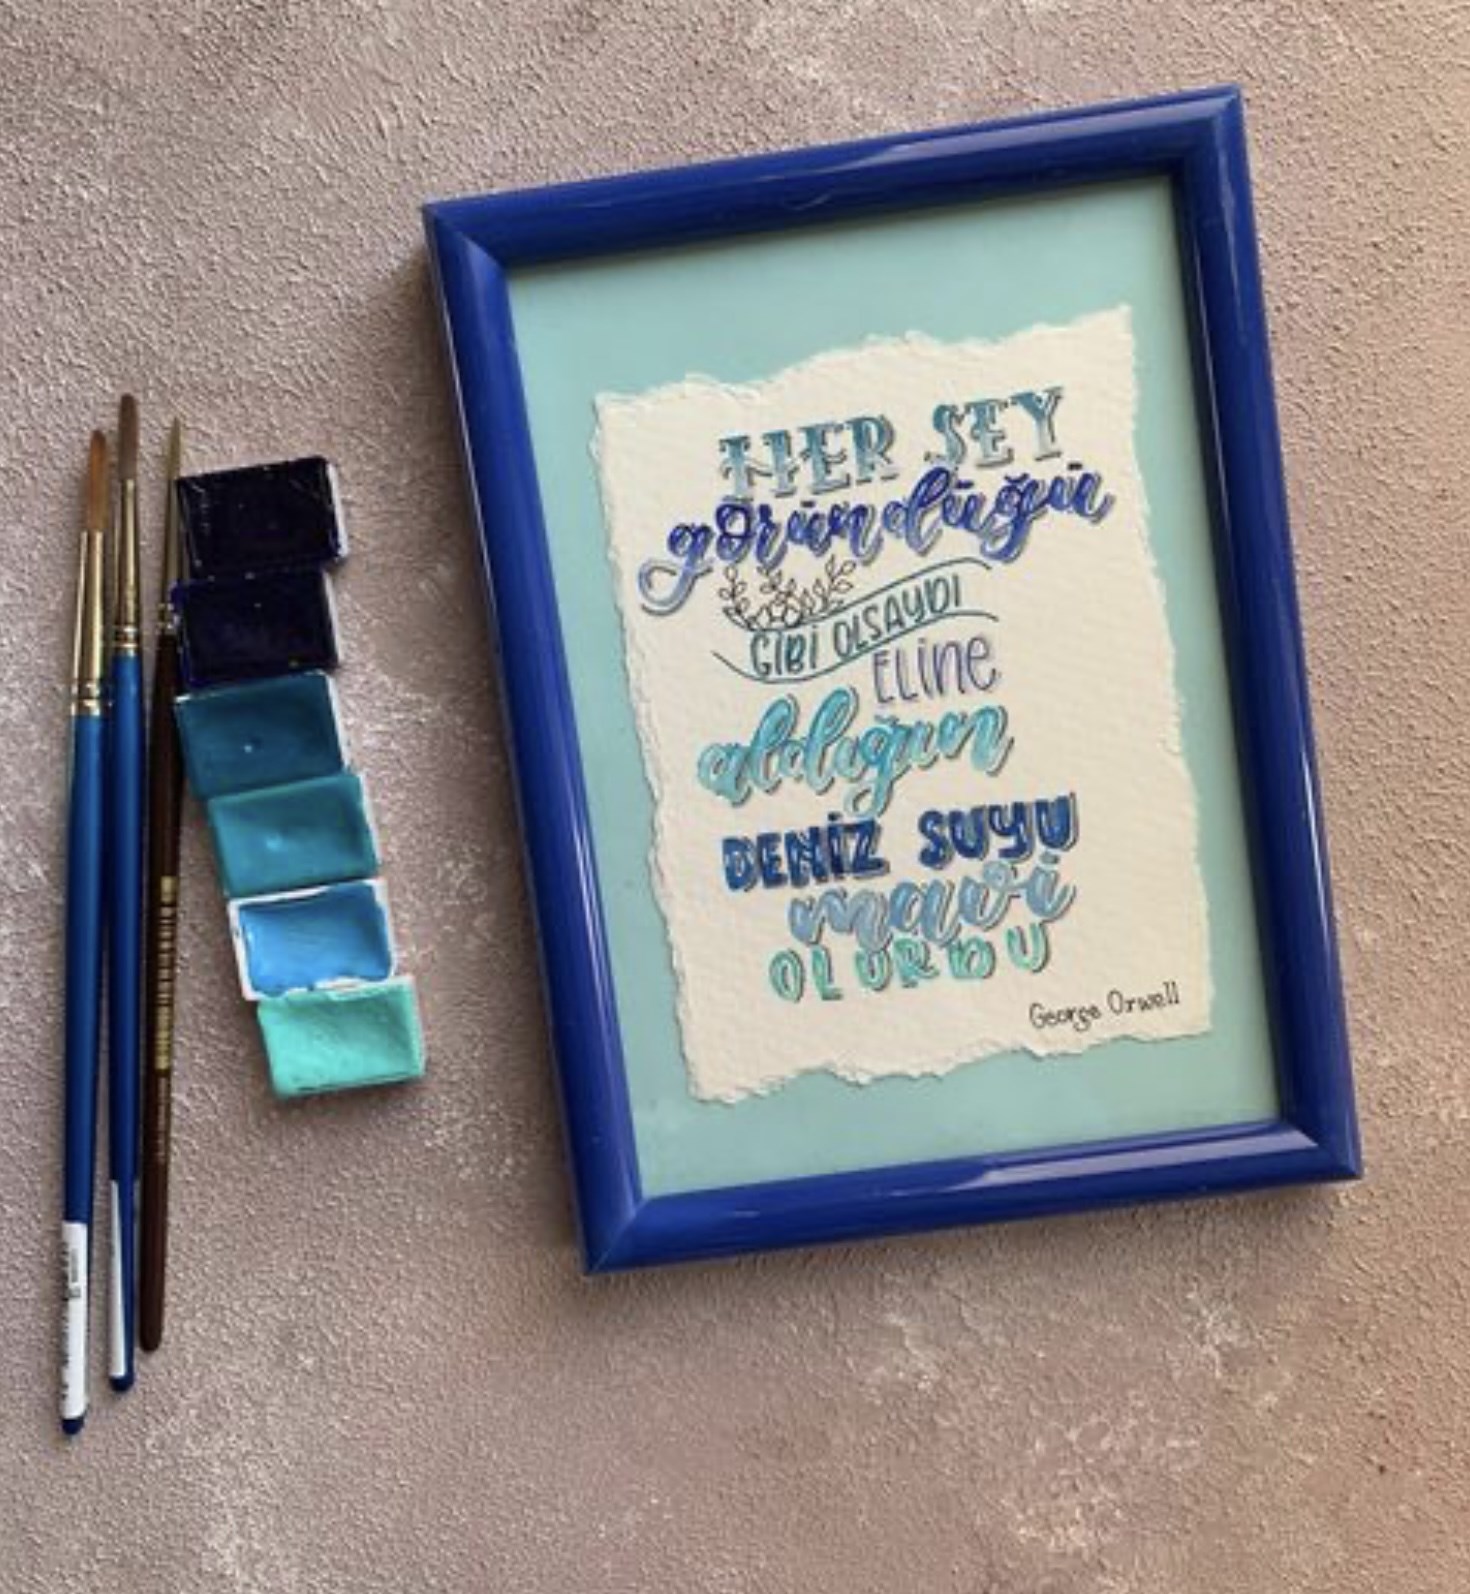 HER ŞEY
göründüğün
GİBİ OLSAYDI
ELİNE
aldığın
DENİZ SUYU
mavi
OLURDU
George Orwell